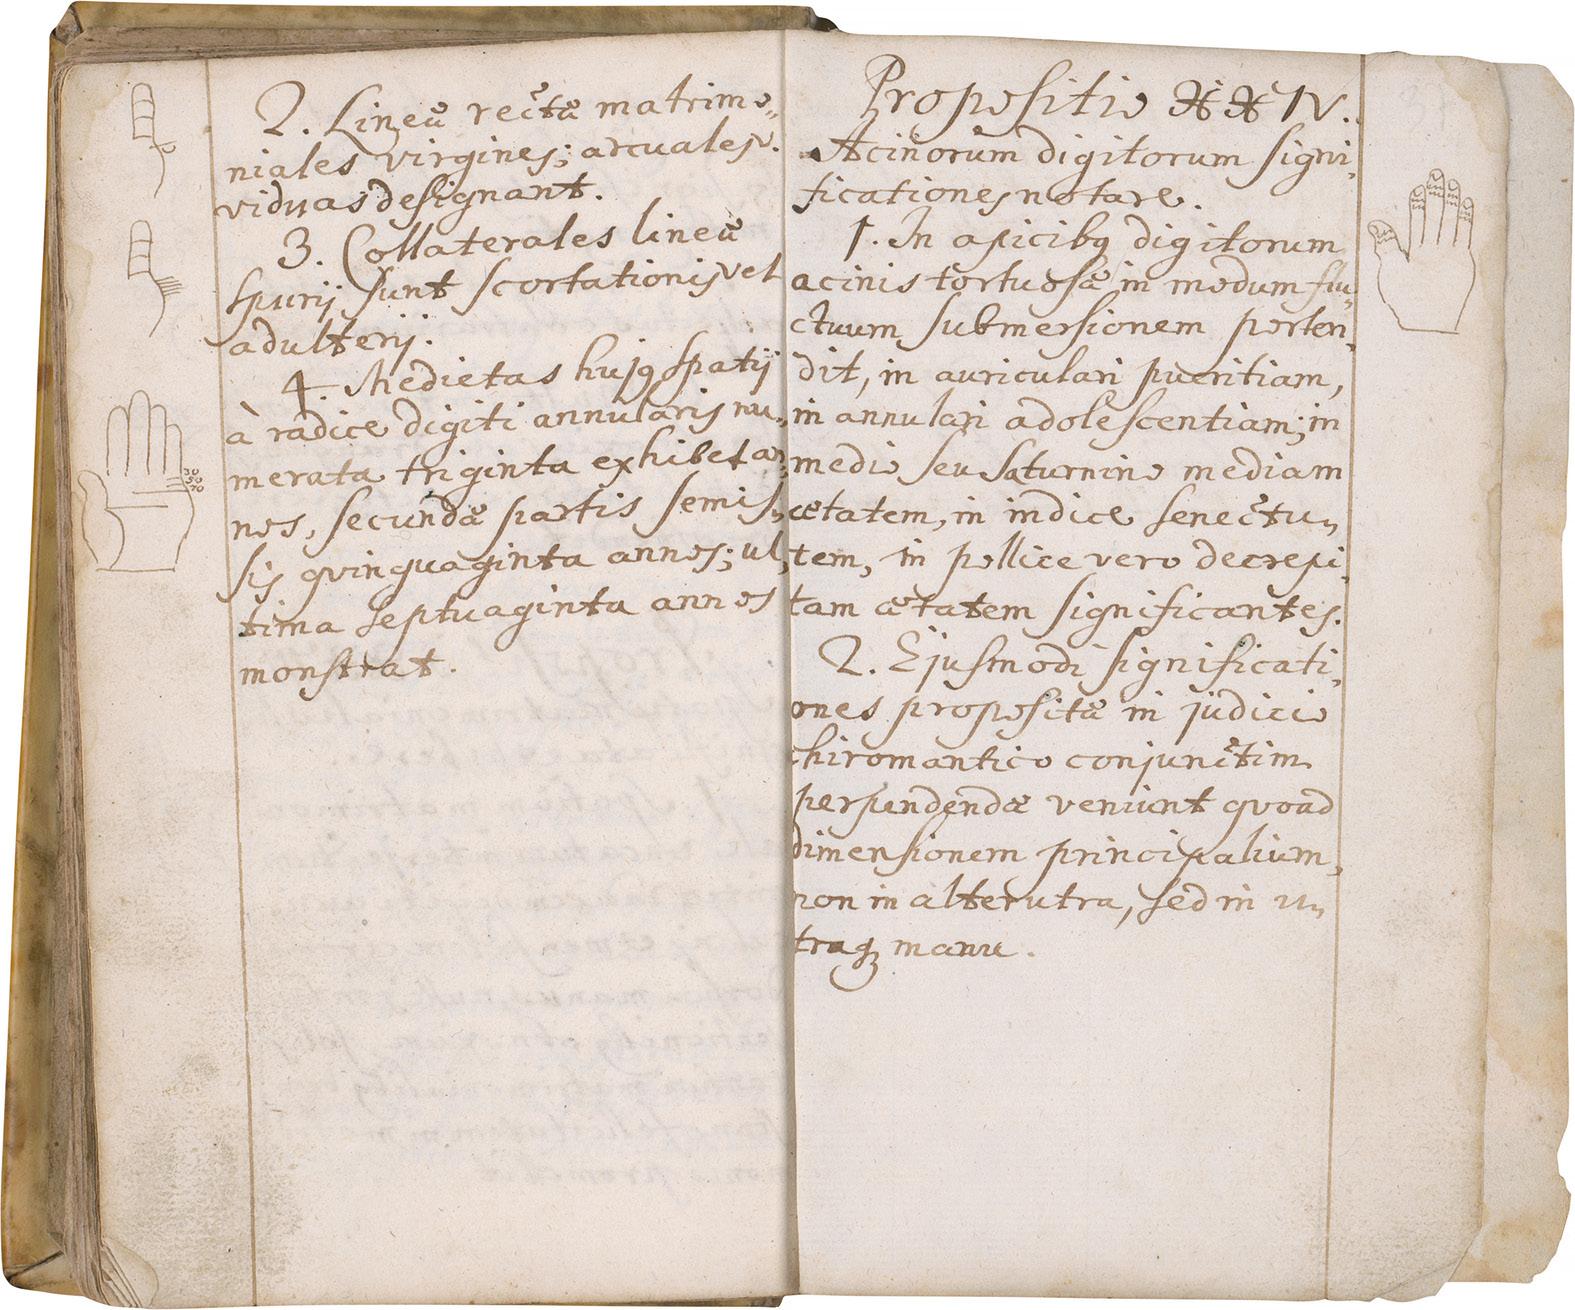 2. Lineæ rectæ matrimo„
niales virgines; arcuales v.
viduas designant.
3. Collaterales lineæ
spurij sunt scortationis vel
adulterij.
4. Medietas hujq spatij
à radice digiti annularis nu„
merata triginta exhibet an„
nos, secundæ partis semis„
sis qvinquaginta annos; ul„
tima septuaginta annos
monstrat.
30
50
70
Propositio XXIV.
Acinorum digitorum signi„
ficationes notare.
1. In apicibq digitorum
acinis tortuosæ in modum flu„
ctuum, submersionem porten„
dit, in auriculari pueritiam,
in annulari adolescentiam; in
medio seu Saturnino mediam
ætatem, in indice senectu„
tem, in pollice vero decrepi„
tam ætatem significantes.
2. Ejusmodi significati„
ones propositæ in judicio
chiromantico conjunctim
perpendendæ veniunt qvoad
dimensionem principalium,
non in alterutra, sed in u„
traqʒ manu.
37